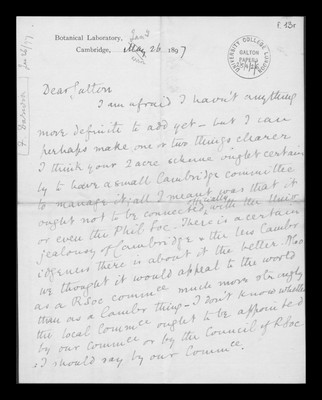 P. 13r
Botanical Laboratory,
Cambridge, May 26. 1897
Jan 3
UNIVERSITY COLLEGE LONDON
GALTON
PAPERS
F. Darwin
Dear Galton
I am afraid I havn't anything
more definite to add yet – but I can
perhaps make one or two things clearer
I think your 2 acre scheme ought certain
ly to have a small Cambridge committee
to manage it; all I meant was that it
ought not to be connected officially with the Univ
or even the Phil Soc. There is a certain
jealousy of Cambridge & the less Cambr
idgeness there is about it the better. Also
we thought it would appeal to the world
as a RSoc commce much more strongly
than as a Cambr thing – I don't know whether
the local Commce ought to be appointed
by our commce or by the Council of RSoc
: I should say by our Commce.